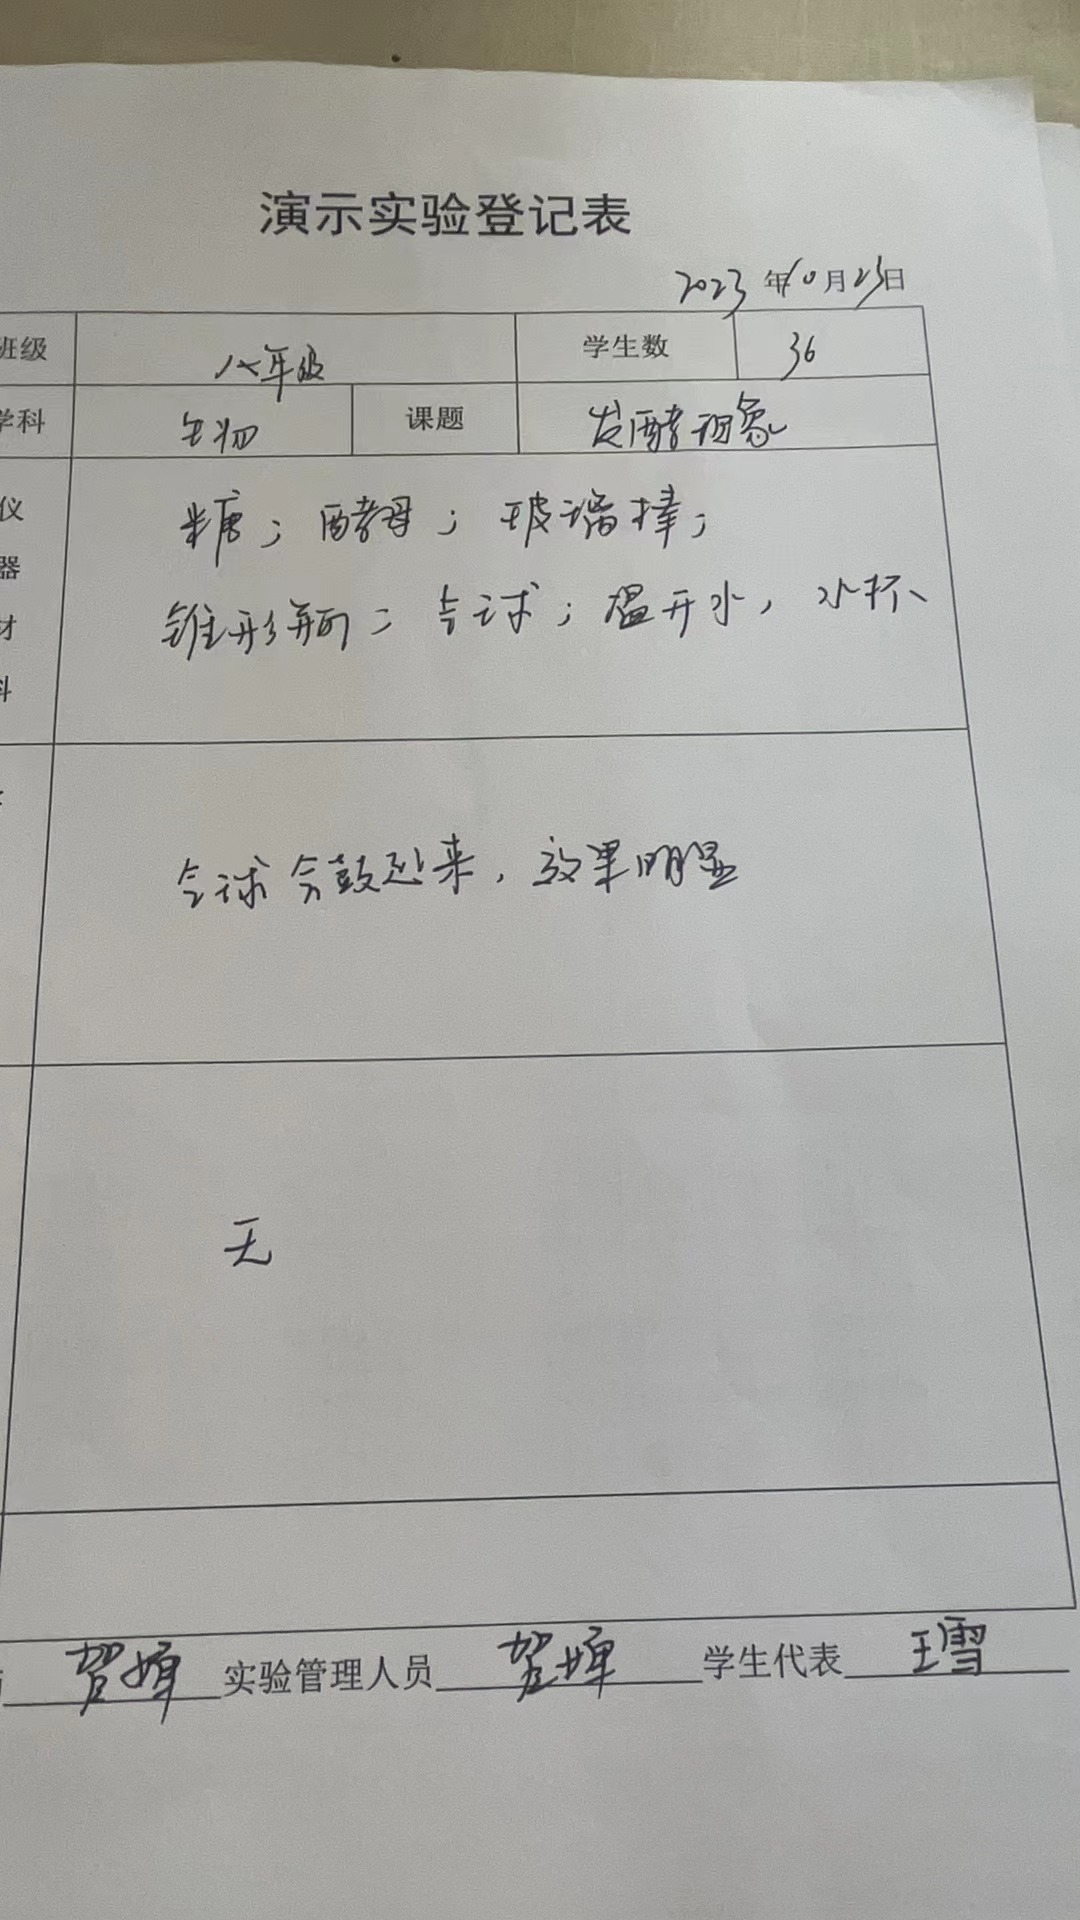 演示实验登记表
2023年10月23日
班级 八年级 学生数 36
学科 生物 课题 发酵现象
仪器材料
糖；酵母；玻璃棒；
锥形瓶；气球；温开水，水杯、
气球会鼓起来，效果明显
无
贺婵 实验管理人员 贺婵 学生代表 王雪